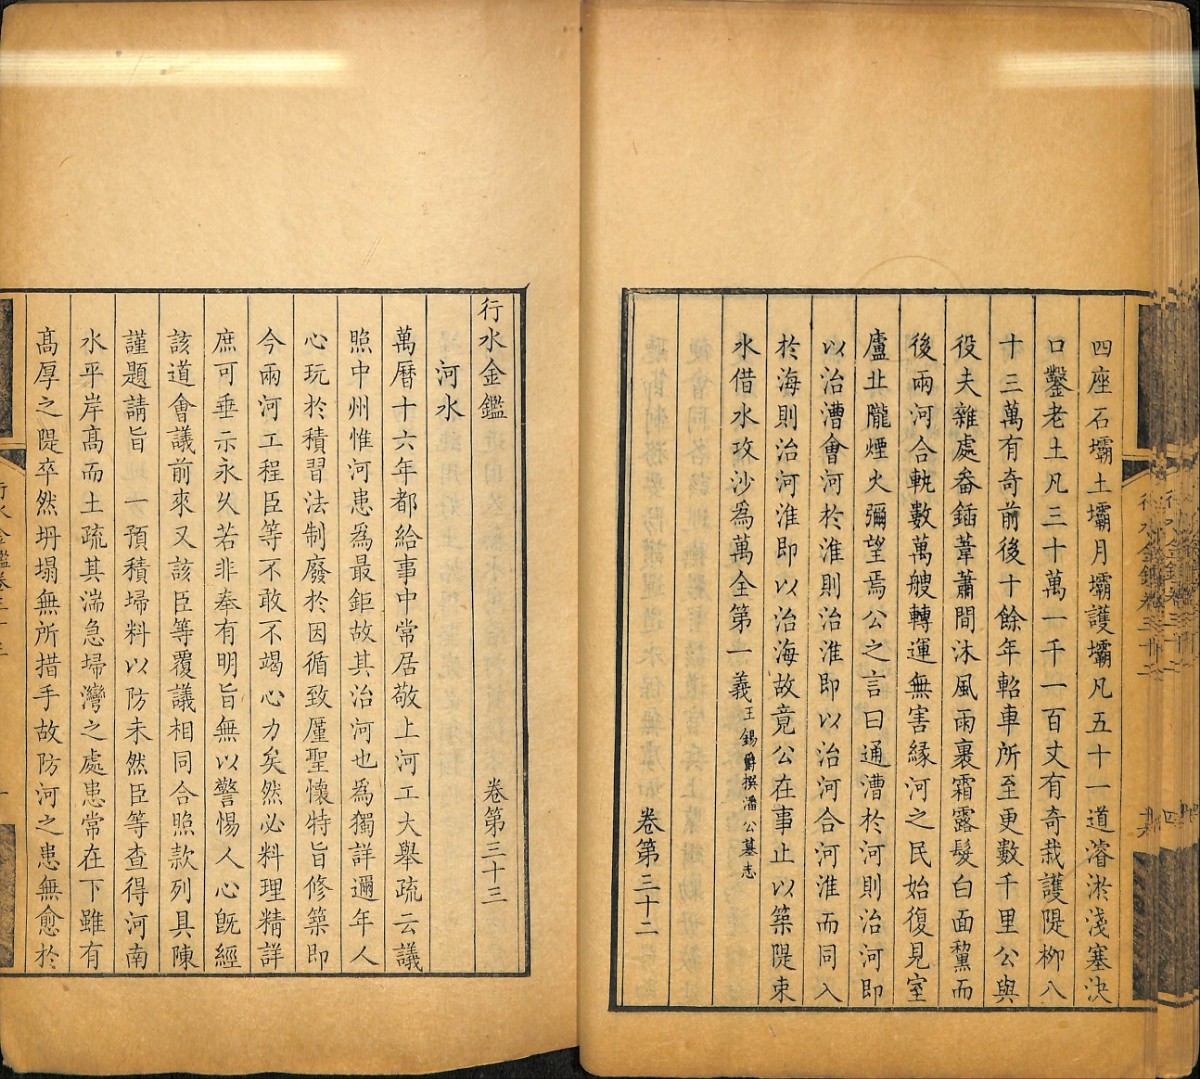 四座石壩土壩月壩護壩凡五十一道濬淤淺塞決
口鑿老土凡三十萬一千一百丈有奇栽護隄柳八
十三萬有奇前後十餘年軺車所至更數千里公與
役夫雜處畚鍤葦蕭間沐風雨裹霜露髮白面黧而
後兩河合軌數萬艘轉運無害緣河之民始復見室
廬北隴煙火彌望焉公之言曰通漕於河則治河即
以治漕會河於淮則治淮即以治河合河淮而同入
於海則治河淮即以治海故竟公在事止以築隄束
水借水攻沙為萬全第一義王錫爵撰潘公墓志
卷第三十二
行水金鑑 卷第三十三
河水
萬曆十六年都給事中常居敬上河工大舉疏云議
照中州惟河患為最鉅故其治河也為獨詳邇年人
心玩於積習法制廢於因循致廑聖懷特旨修築即
今兩河工程臣等不敢不竭心力矣然必料理精詳
庶可垂示永久若非奉有明旨無以警惕人心旣經
該道會議前來又該臣等覆議相同合照款列具陳
謹題請旨 一預積埽料以防未然臣等查得河南
水平岸髙而土疏其湍急埽灣之處患常在下雖有
髙厚之隄卒然坍塌無所措手故防河之患無愈於